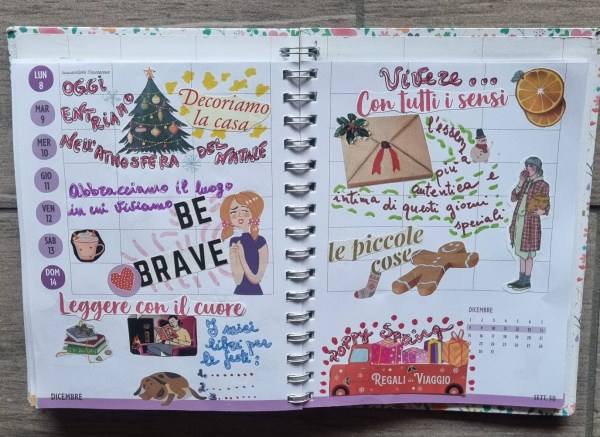 LUN
8
MAR
9
MER
10
GIO
11
VEN
12
SAB
13
DOM
14
OGGI
ENTRIAMO
NELL'ATMOSFERA DEL NATALE
Decoriamo
la casa
Abbracciamo il luogo
in cui viviamo
BE
BRAVE
Leggere con il cuore
I miei
libri per
le feste:
1.
2.
3.
DICEMBRE
Vivere...
Con tutti i sensi
l'essenza
più a
autentica e
intima di questi giorni
speciali
le piccole
cose
POPPY SPRING
REGALI IN VIAGGIO
DICEMBRE
1 2 3 4 5 6 7
8 9 10 11 12 13 14
15 16 17 18 19 20 21
22 23 24 25 26 27 28
29 30 31
SETT. 50